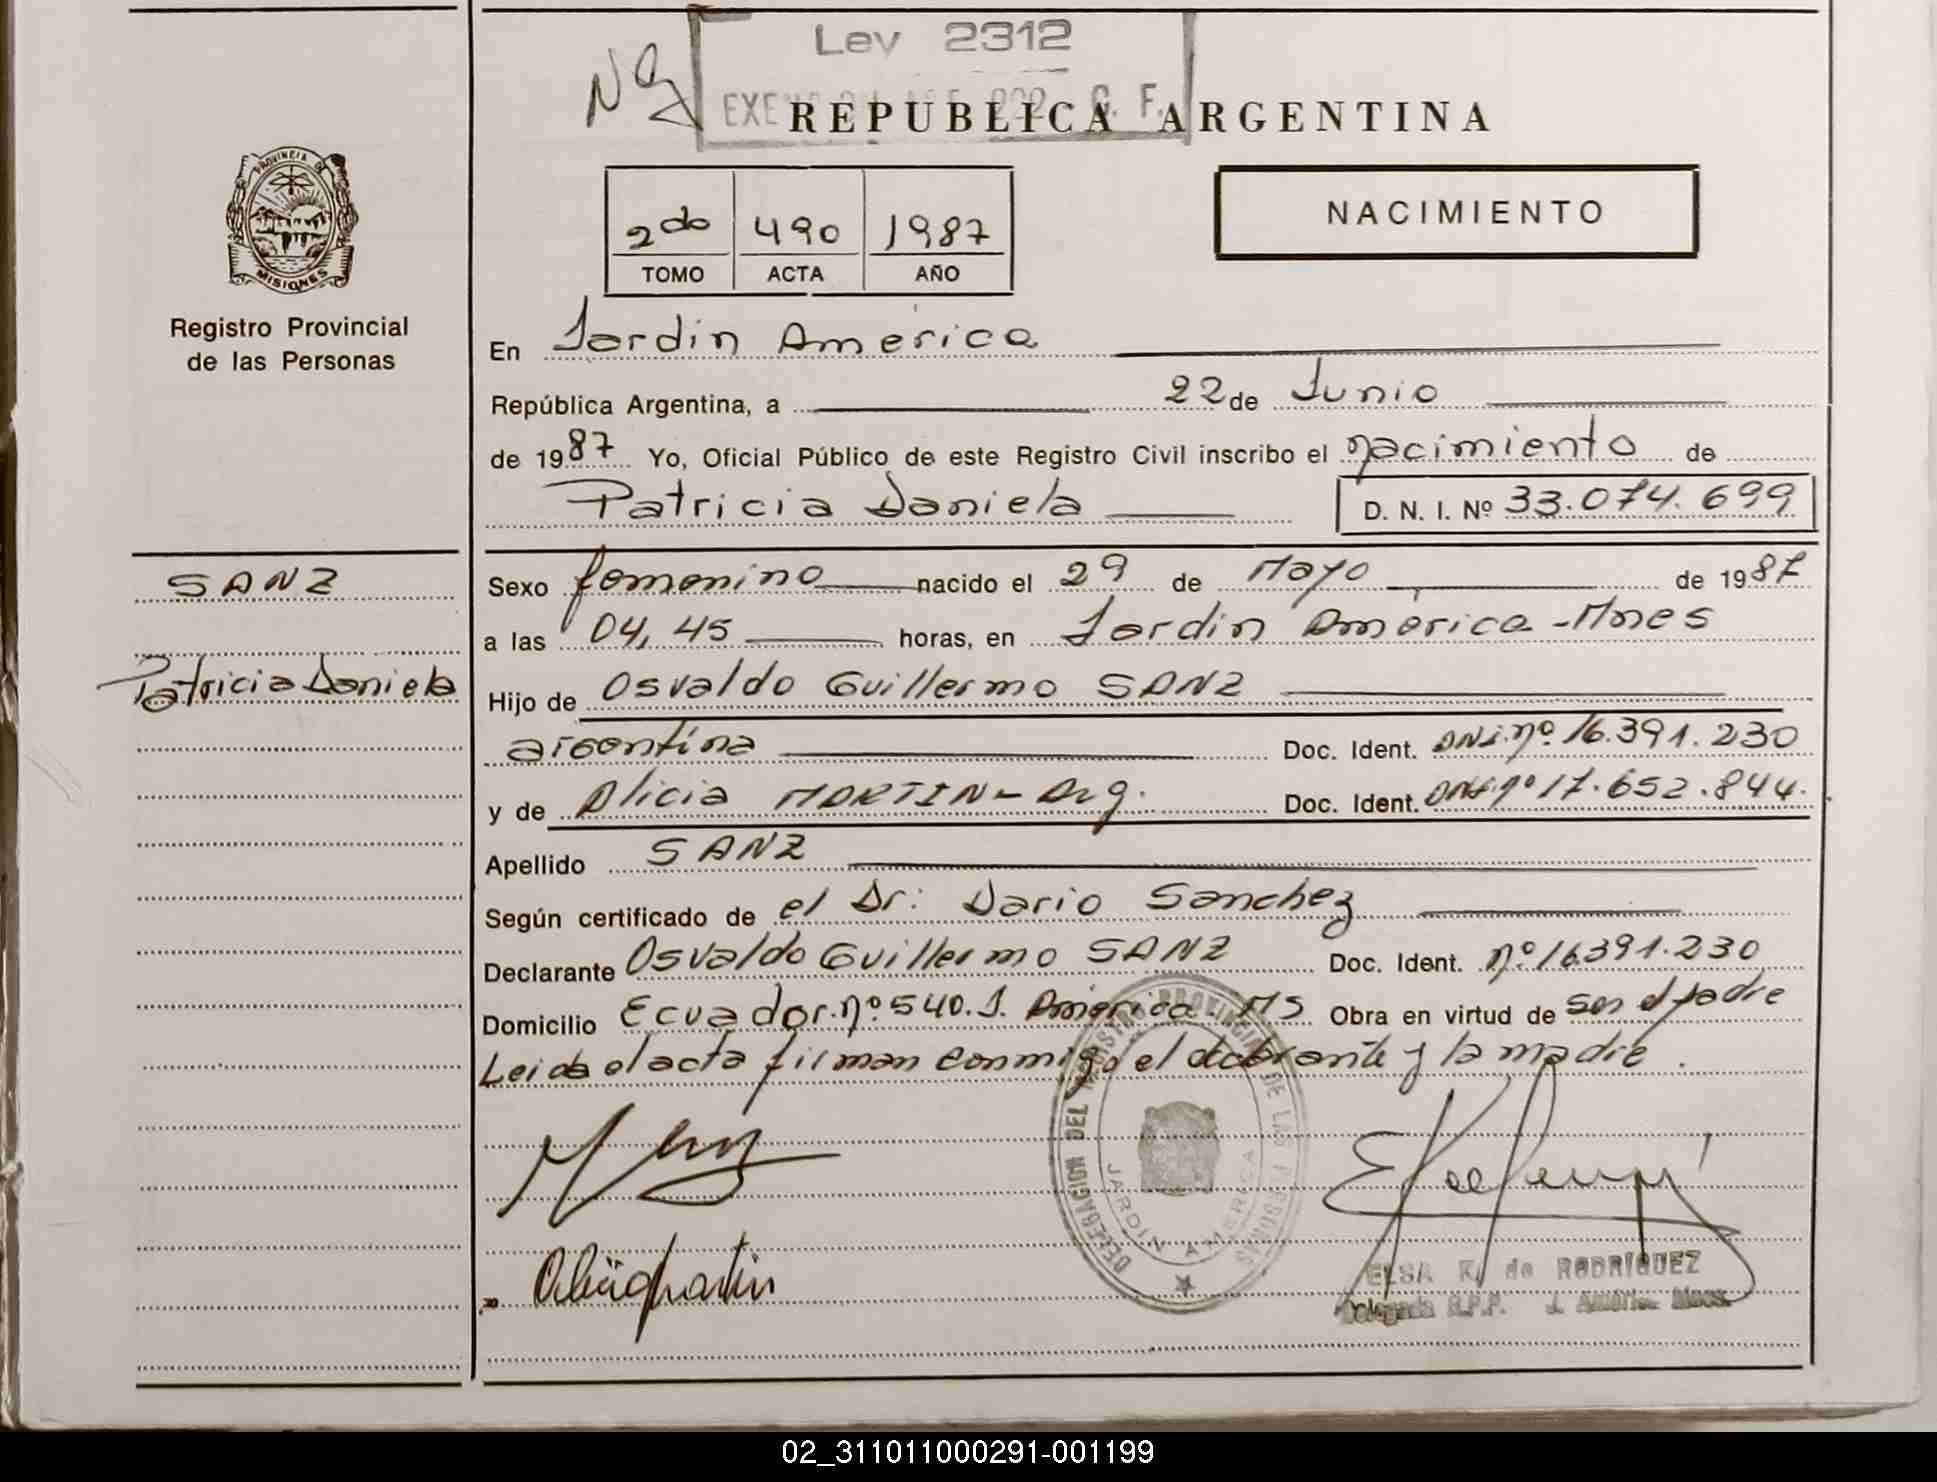 Ley 2312
REPUBLICA ARGENTINA
PROVINCIA DE
MISIONES
Registro Provincial
de las Personas
2do 490 1987
TOMO ACTA AÑO
NACIMIENTO
En Jardin America
República Argentina, a 22 de Junio
de 1987 Yo, Oficial Público de este Registro Civil inscribo el nacimiento de
Patricia Daniela D. N. I. Nº 33.074.699
SANZ
Patricia Daniela
Sexo femenino nacido el 29 de Mayo de 1987
a las 04,45 horas, en Jardin América - Mnes
Hijo de Osvaldo Guillermo SANZ
argentina Doc. Ident. DNI.nº 16.391.230
y de Alicia MARTIN - Arg. Doc. Ident. DNI.nº 17.652.844.
Apellido SANZ
Según certificado de el Dr: Dario Sanchez
Declarante Osvaldo Guillermo SANZ Doc. Ident. nº 16.391.230
Domicilio Ecuador.nº 540. J. América. MS Obra en virtud de ser el padre
Leida el acta firman conmigo el declarante y la madre.
DELEGACION DEL REGISTRO PROVINCIAL DE LAS PERSONAS
JARDÍN AMERICA
Alicia Martin
ELSA K. de RODRÍGUEZ
Delegada R.P.P. J. América Mnes.
02_311011000291-001199